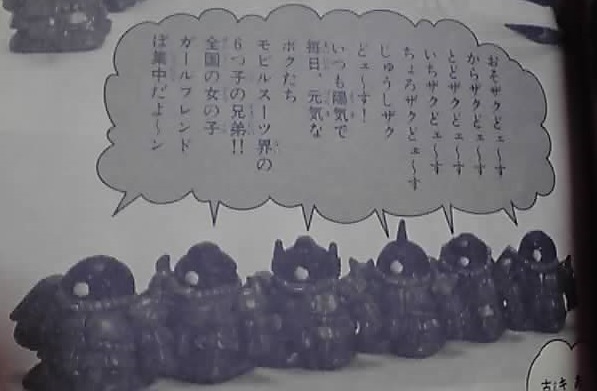 おそザクどェ〜す
からザクどェ〜す
とどザクどェ〜す
いちザクどェ〜す
ちょろザクどェ〜す
じゅうしザク
どェ〜す!
いつも陽気で
毎日、元気な
ボクたち
モビルスーツ界の
6つ子の兄弟!!
全国の女の子
ガールフレンド
ぼ集中だよ〜ン